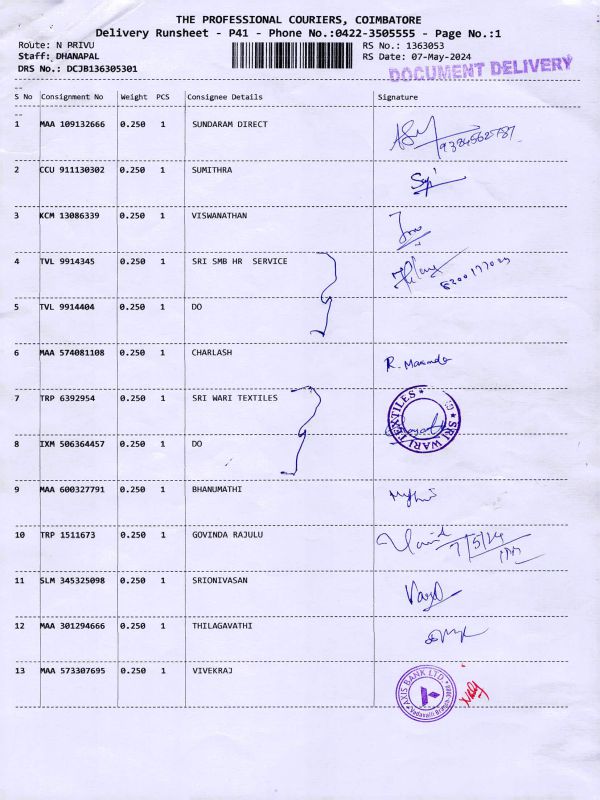 THE PROFESSIONAL COURIERS, COIMBATORE
Delivery Runsheet - P41 - Phone No.:0422-3505555 - Page No.:1
Route: N PRIVU
RS No.: 1363053
Staff: DHANAPAL
RS Date: 07-May-2024
DRS No.: DCJB136305301
DOCUMENT DELIVERY
S No Consignment No Weight PCS Consignee Details Signature
1 MAA 109132666 0.250 1 SUNDARAM DIRECT
2 CCU 911130302 0.250 1 SUMITHRA
3 KCM 13086339 0.250 1 VISWANATHAN
4 TVL 9914345 0.250 1 SRI SMB HR SERVICE
5 TVL 9914404 0.250 1 DO
6 MAA 574081108 0.250 1 CHARLASH
7 TRP 6392954 0.250 1 SRI WARI TEXTILES
SRI WARI TEXTILES
8 IXM 506364457 0.250 1 DO
9 MAA 600327791 0.250 1 BHANUMATHI
10 TRP 1511673 0.250 1 GOVINDA RAJULU
7/5/24
11 SLM 345325098 0.250 1 SRIONIVASAN
12 MAA 301294666 0.250 1 THILAGAVATHI
13 MAA 573307695 0.250 1 VIVEKRAJ
AXIS BANK LTD.
Vadavalli Branch